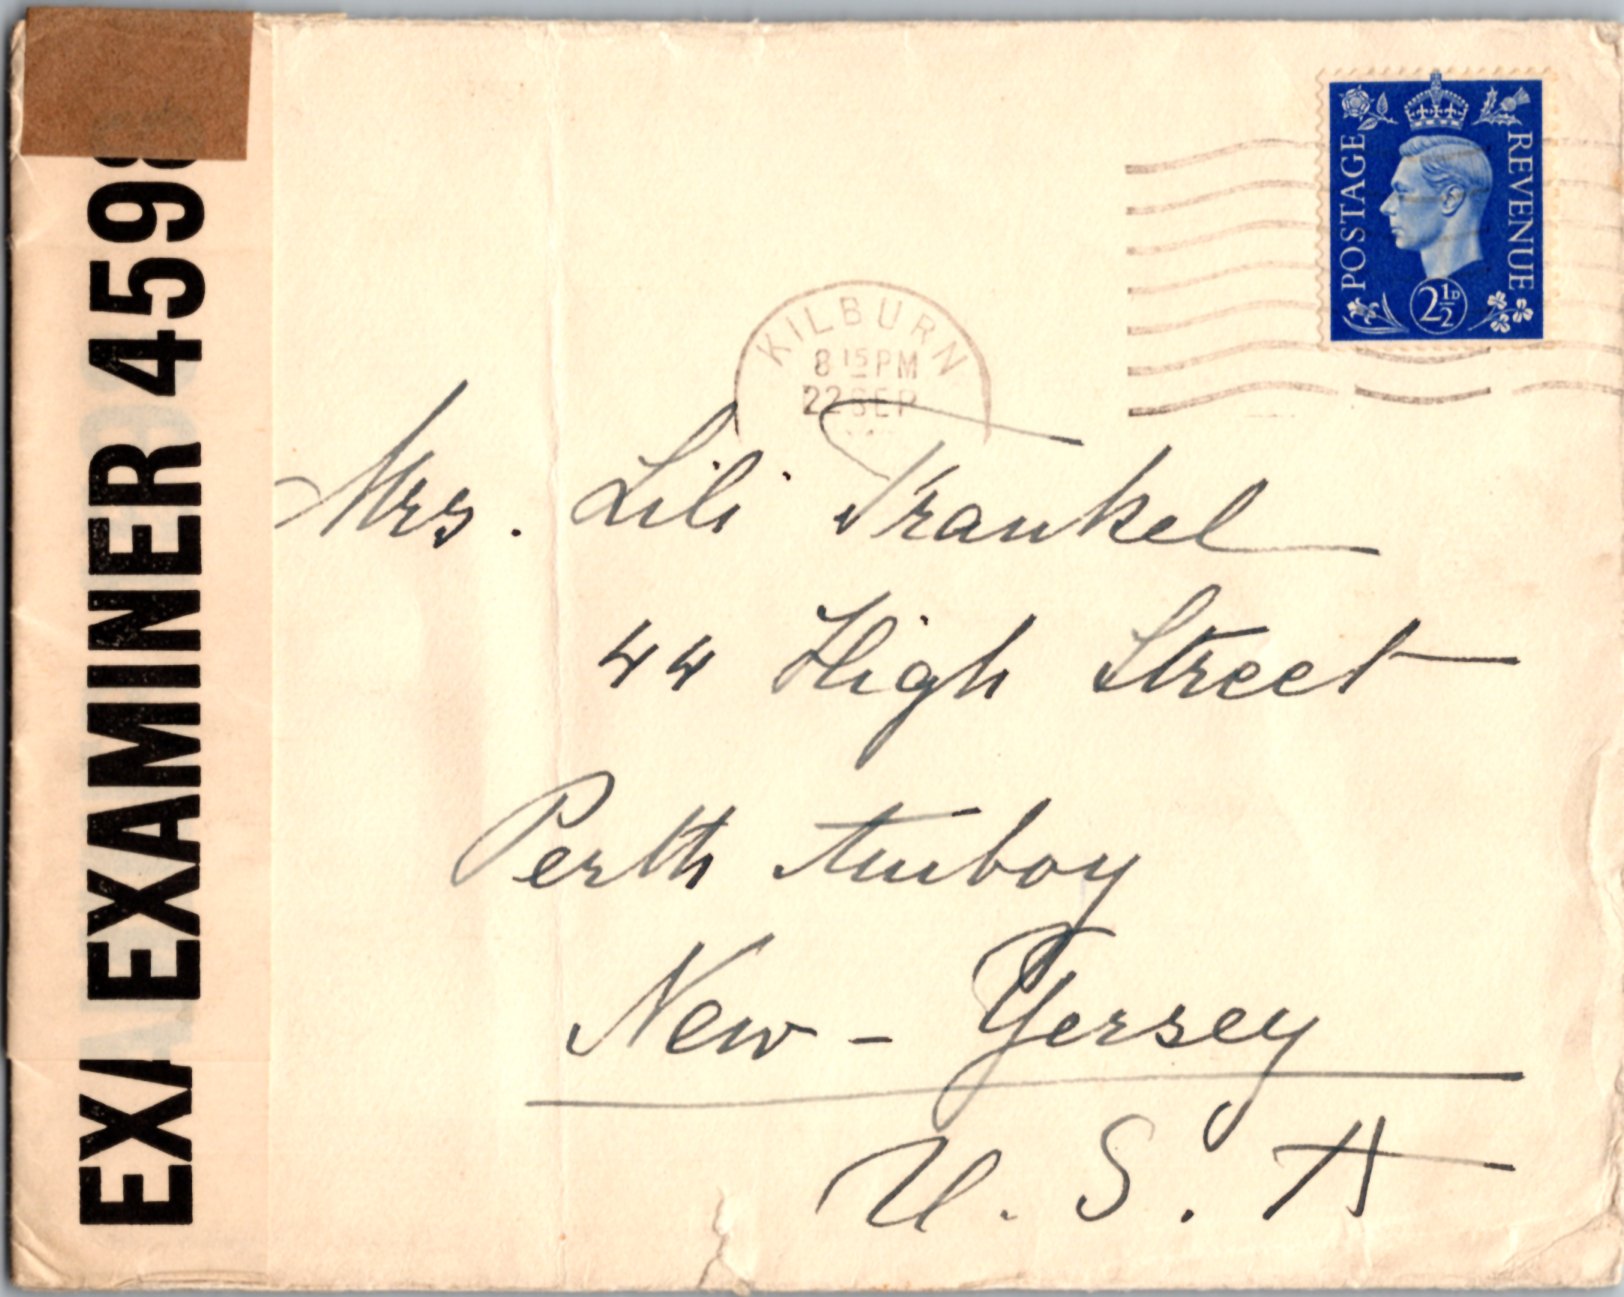 EXA EXAMINER 4598
POSTAGE
REVENUE
2½D
KILBURN
8 15 PM
22 SEP
Mrs. Lili Frankel
44 High Street
Perth Amboy
New - Yersey
U. S. A